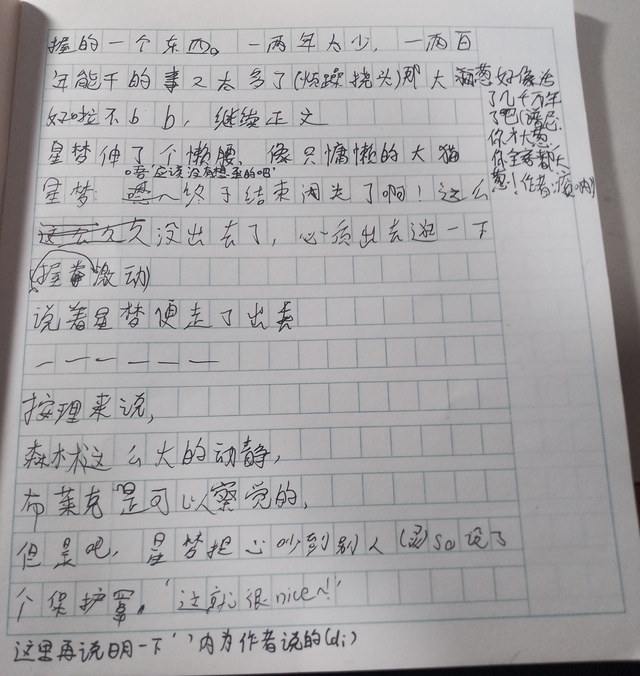 握的一个东西。一两年太少，一两百
年能干的事又太多了(烦躁挠头)那大
好啦不bb，继续正文
星梦伸了个懒腰，像只慵懒的大猫
星梦：～终于结束闭关了啊！这么
久没出去了，必须出去逛一下
(握拳激动)
说着星梦便走了出去
——————
按理来说，
森林这么大的动静，
布莱克是可以察觉的，
但是吧，星梦担心吵到别人(灵)so设了
个保护罩，‘这就很nice~!’
这里再说明一下‘’内为作者说的(di)
葱好像活
了几千万年
了吧
你才大葱，
你全家都大
葱！作者：